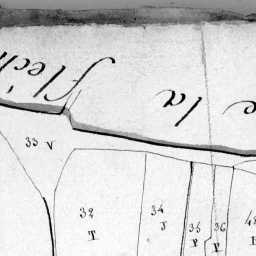 e la flèch
33 V
32 T
34 J
35 P
36 P